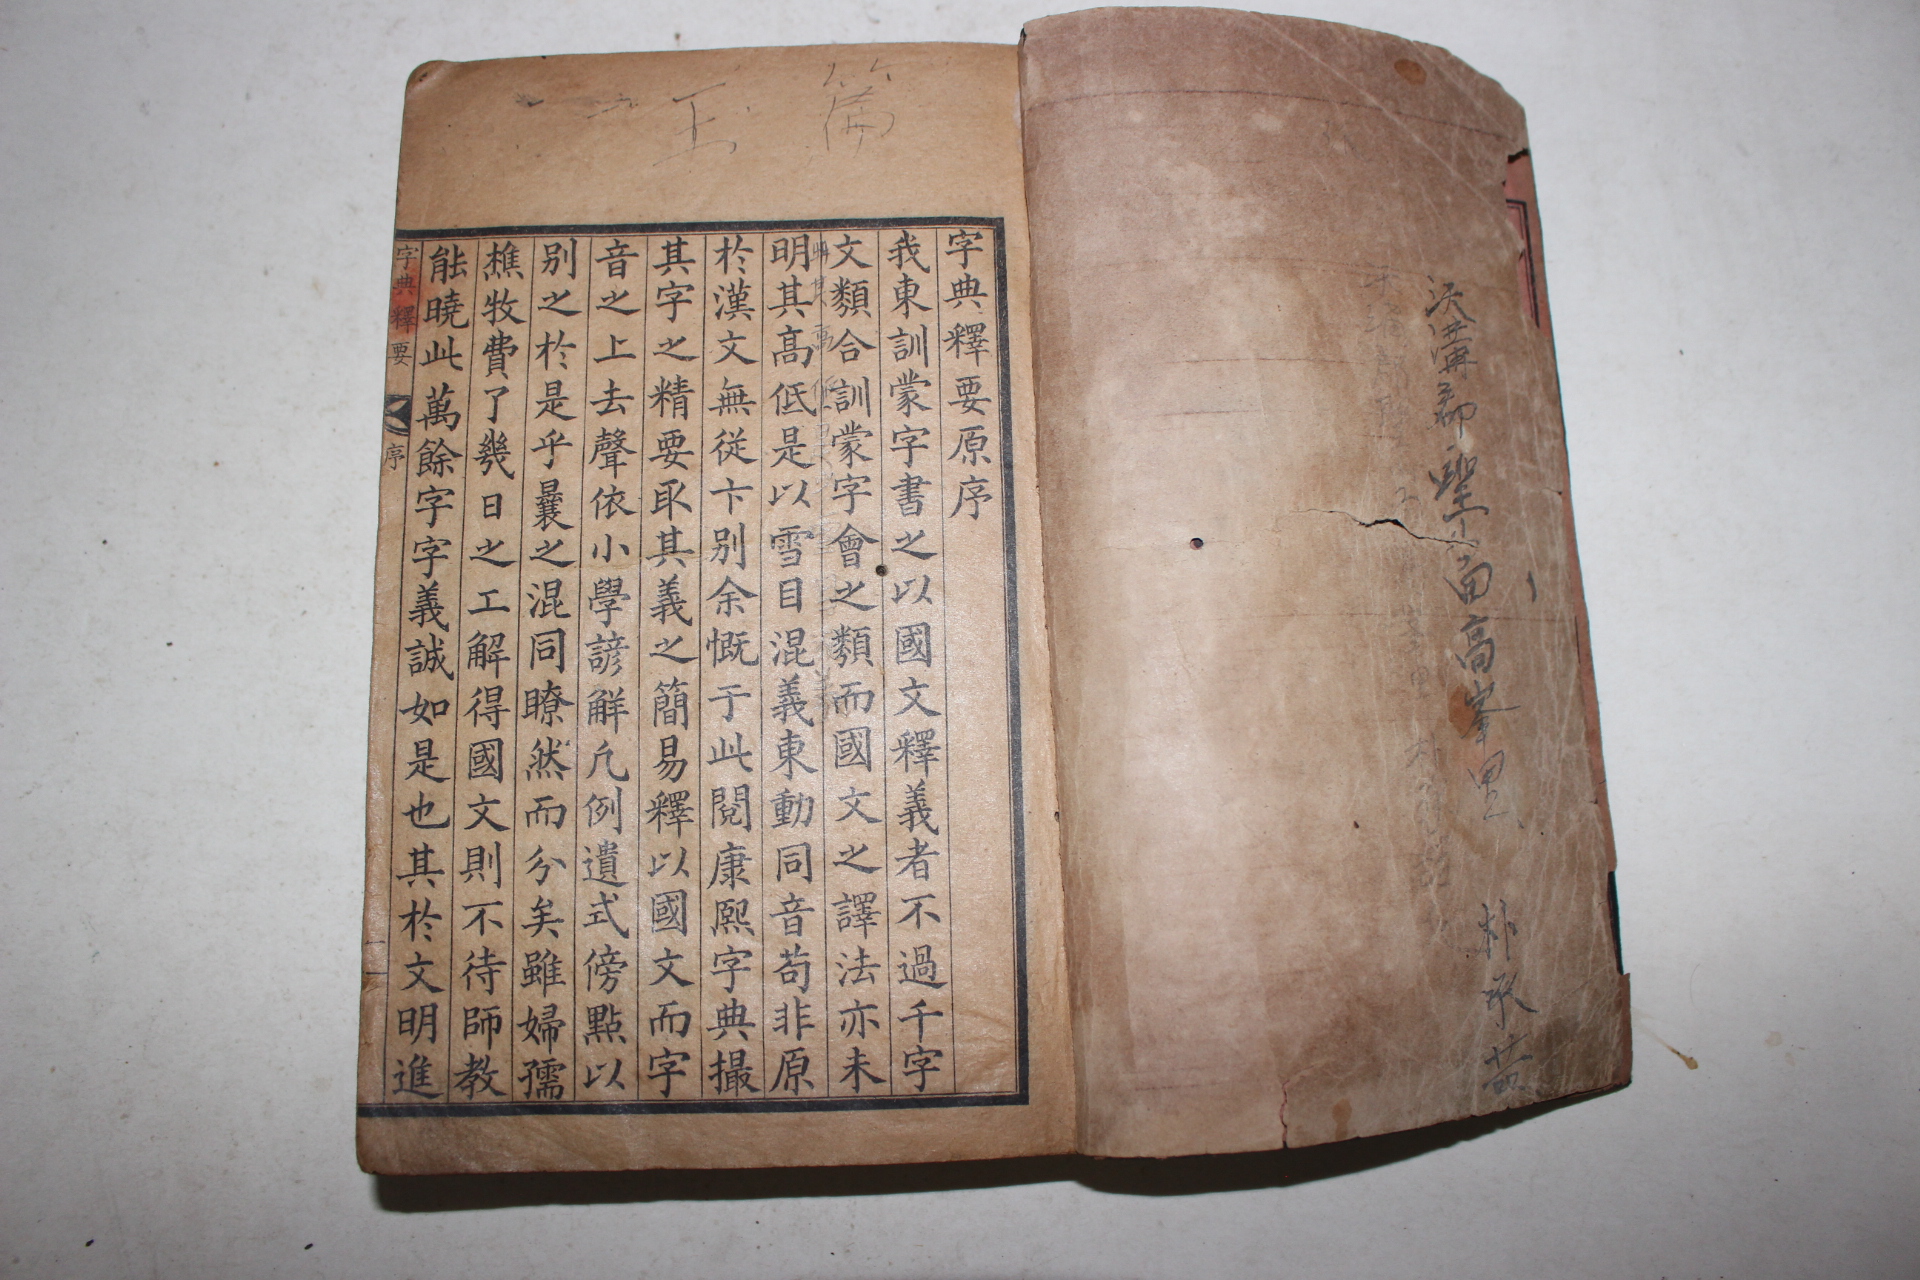 沃溝郡聖山面高峯里 朴承
玉篇
字典釋要原序
我東訓蒙字書之以國文釋義者不過千字
文類合訓蒙字會之類而國文之譯法亦未
明其高低是以雪目混義東動同音苟非原
於漢文無從卞別余慨于此閱康熙字典撮
其字之精要取其義之簡易釋以國文而字
音之上去聲依小學諺解凡例遺式傍點以
別之於是乎曩之混同瞭然而分矣雖婦孺
樵牧費了幾日之工解得國文則不待師教
能曉此萬餘字字義誠如是也其於文明進
字典釋要 序 一